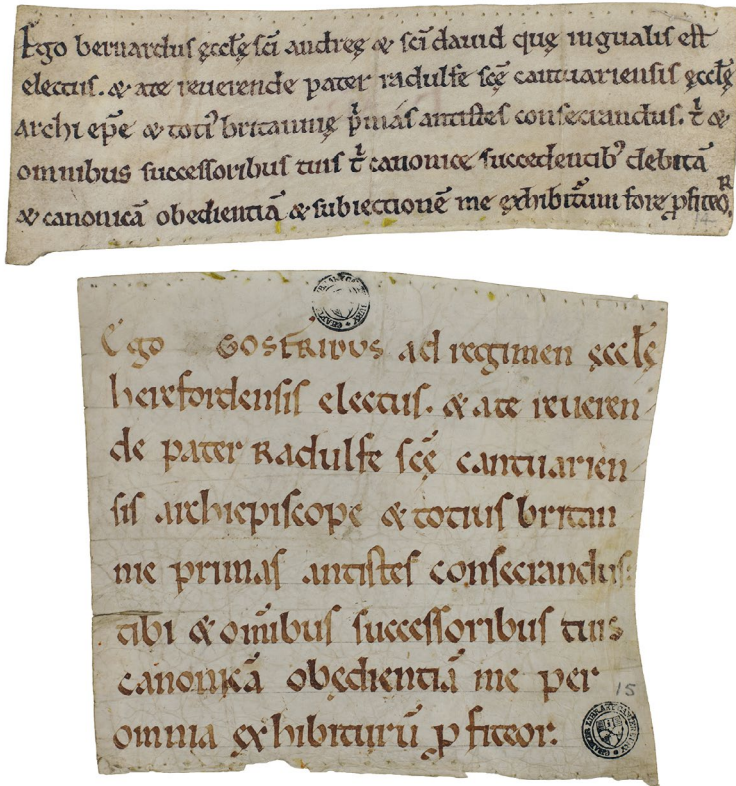 Ego bernardus ęcclę̄ sc̄i andreę & sc̄i dauid quę in gualis est
electus. & a te reuerende pater radulfe sc̄ę cantuariensis ęcclę̄
archi ep̄e & totiꝰ britannię p̄mas antistes consecrandus. t̄ &
omnibus successoribus tuis t̄ canonice succedentibꝰ debitā
& canonicā obedientiā & subiectionē me exhibit̄um fore ꝓfiteoR.
14
Ego GOSFRIDUS ad regimen ęcclę̄
herefordensis electus. & a te reueren
de pater Radulfe sc̄ę cantuarien
sis archiepiscope & totius britan
nie primas antistes consecrandus:
tibi & om̄ibus successoribus tuis
canonicā obędientiā me per
omnia ęxhibiturū ꝓfiteor.
15